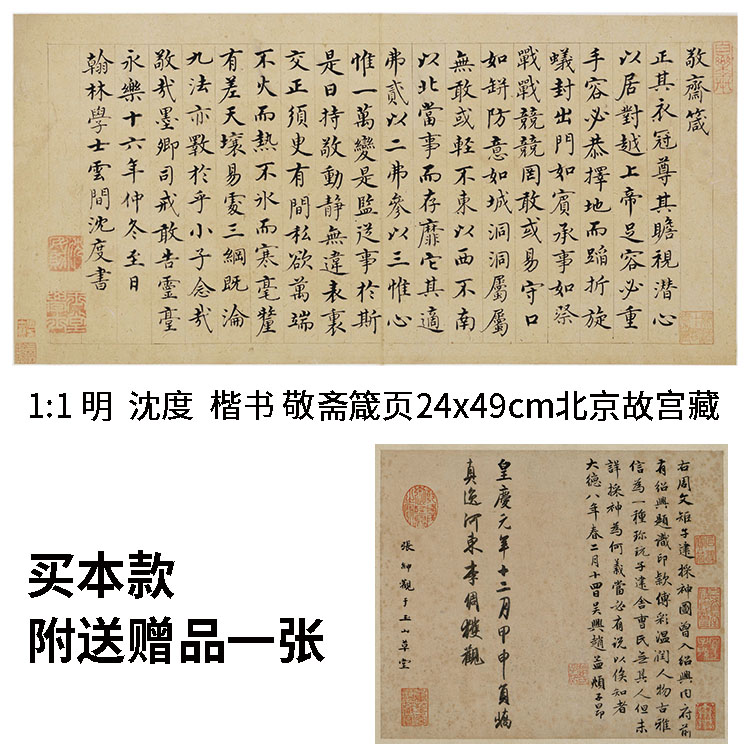 敬齋箴
正其衣冠尊其瞻視潛心
以居對越上帝足容必重
手容必恭擇地而蹈折旋
蟻封出門如賓承事如祭
戰戰兢兢罔敢或易守口
如缾防意如城洞洞屬屬
無敢或輕不東以西不南
以北當事而存靡它其適
弗貳以二弗參以三惟心
惟一萬變是監從事於斯
是曰持敬動静無違表裏
交正須臾有間私欲萬端
不火而熱不冰而寒毫釐
有差天壤易處三綱既淪
九法亦斁於乎小子念哉
敬哉墨卿司戒敢告靈臺
永樂十六年仲冬至日
翰林學士雲間沈度書
1:1 明 沈度 楷书 敬斋箴页24x49cm北京故宫藏
买本款
附送赠品一张
右周文矩子建採神圖曾入紹興内府前
有紹興題識印款傅彩温潤人物古雅
信為一種珎玩子建舍曹氏無其人但未
詳採神為何義當必有説以俟知者
大德八年春二月十四日吳興趙孟頫子昂
皇慶元年十二月甲申負嶠
真逸河東李倜獲觀
張紳觀于玉山草堂